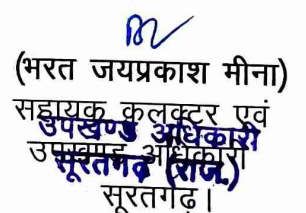 (भरत जयप्रकाश मीना)
सहायक कलक्टर एवं
उपखण्ड अधिकारी
उपखण्ड अधिकारी
सूरतगढ़ (राज.)
सूरतगढ़।